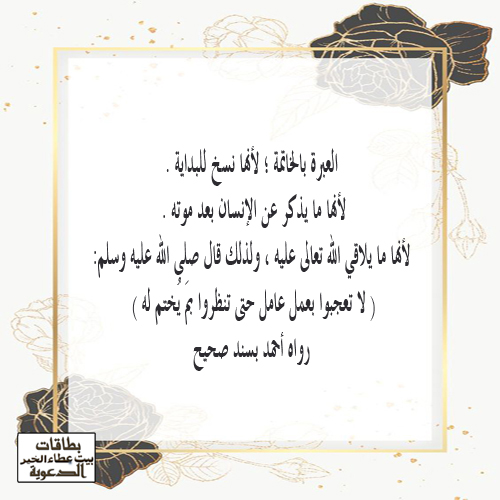 العبرة بالخاتمة ؛ لأنها نسخ للبداية .
لأنها ما يذكر عن الإنسان بعد موته .
لأنها ما يلاقي الله تعالى عليه ، ولذلك قال صلى الله عليه وسلم:
( لا تعجبوا بعمل عامل حتى تنظروا بمَ يُختم له )
رواه أحمد بسند صحيح
بطاقات
بيت عطاء الخير
الدعوية